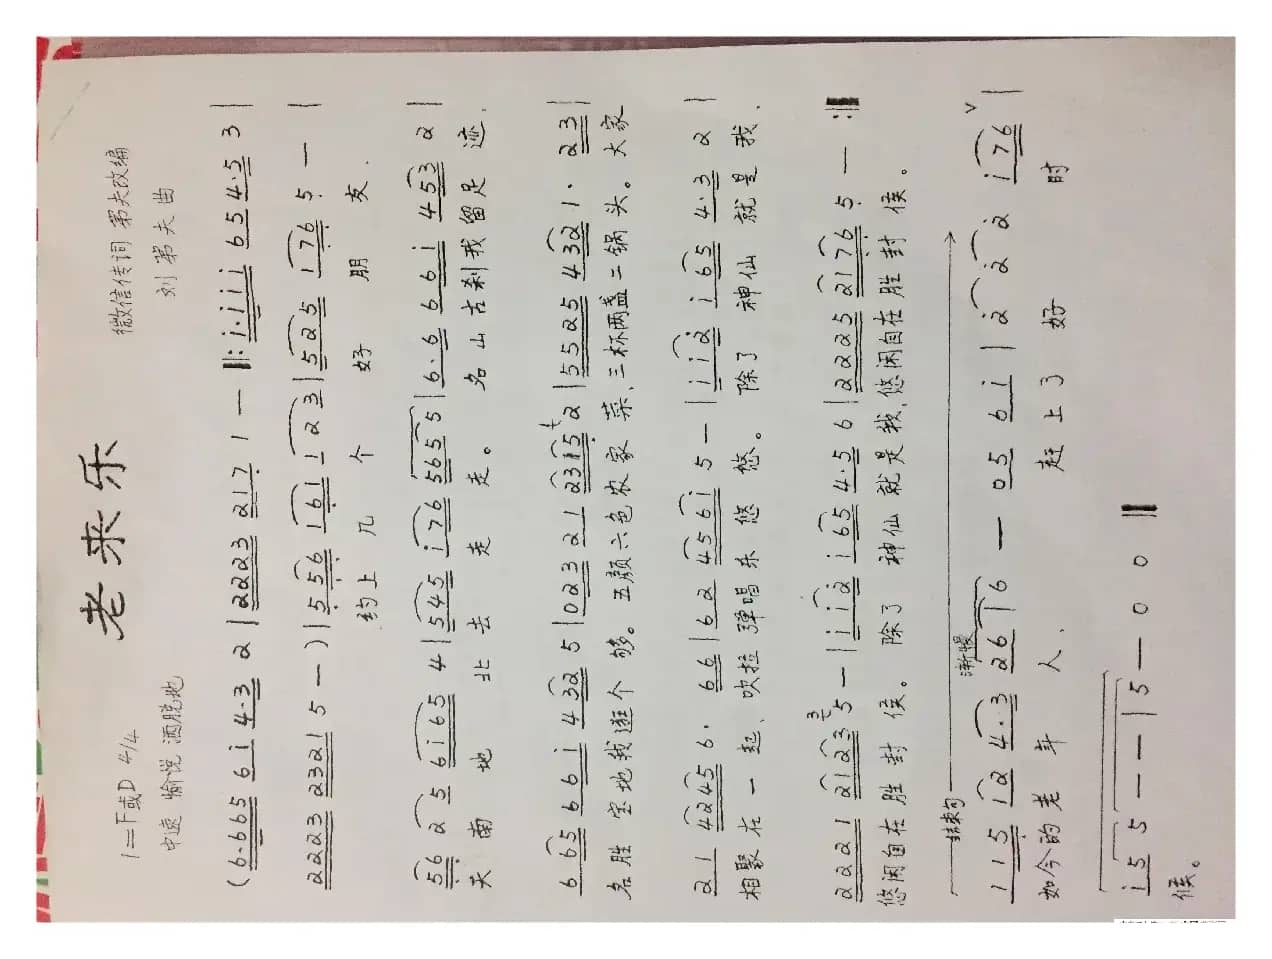 老来乐
1=F或D 4/4
微信传词 第夫改编
中速 愉悦 洒脱地
刘第夫曲
(6·665 6i 4·3 2 | 2223 217 1 — ‖: i·iii 654·5 3 |
2223 2321 5 —) | 556 161 123 | 525 176 5 — |
约上几个好朋友.
56 25 6i65 4 | 545 i76 5655 5 | 6·6 66i 453 2 |
天南地北去走走。名山古刹我留足迹.
665 66i 432 5 | 0232 1 2315 2 | 5525 432 1· 23 |
名胜宝地我逛个够。五颜六色农家菜,三杯两盏二锅头。大家
21 4245 6· 66 | 62 456i 5 — | ii2 i65 4·3 2 |
相聚在一起、吹拉弹唱乐悠悠。除了神仙就是我.
2221 2123 5 — | ii2 i654·5 6 | 2225 2176 5 — :‖
悠闲自在胜封侯。除了神仙就是我,悠闲自在胜封侯。
结束句 渐慢
115 12 4·3 26 | 6 — 05 6i | 2 2 2 i76 |
如今的老年人、赶上了好时
i5 5 — — | 5 — 0 0 ‖
候。